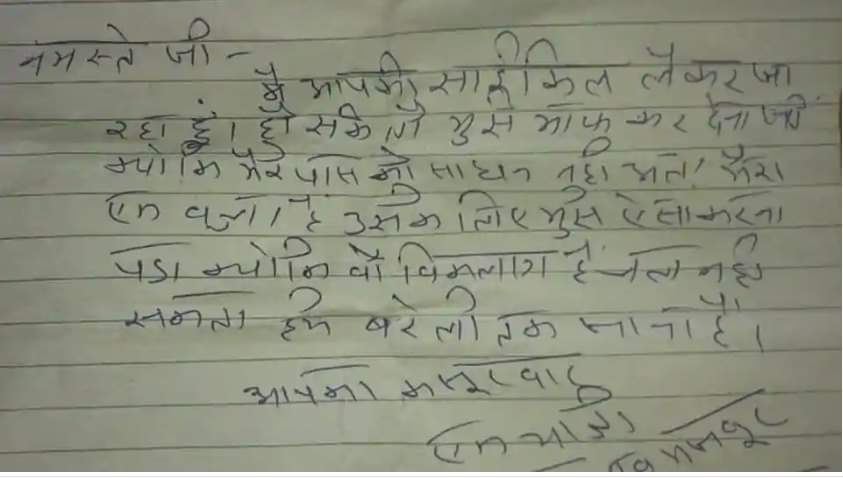 नमस्ते जी -
मैं आपकी साईकिल लेकर जा
रहा हूं। हो सके तो मुझे माफ कर देना जी
क्योकि मेरे पास को साधन नही अतः मेरा
एक बच्चा है उसके लिए मुझे ऐसा करना
पडा क्योकि वो विकलांग है चल नही
सकता हमे बरेली तक जाना है।
आपका कसूरवार
एक यात्री
मजबूर